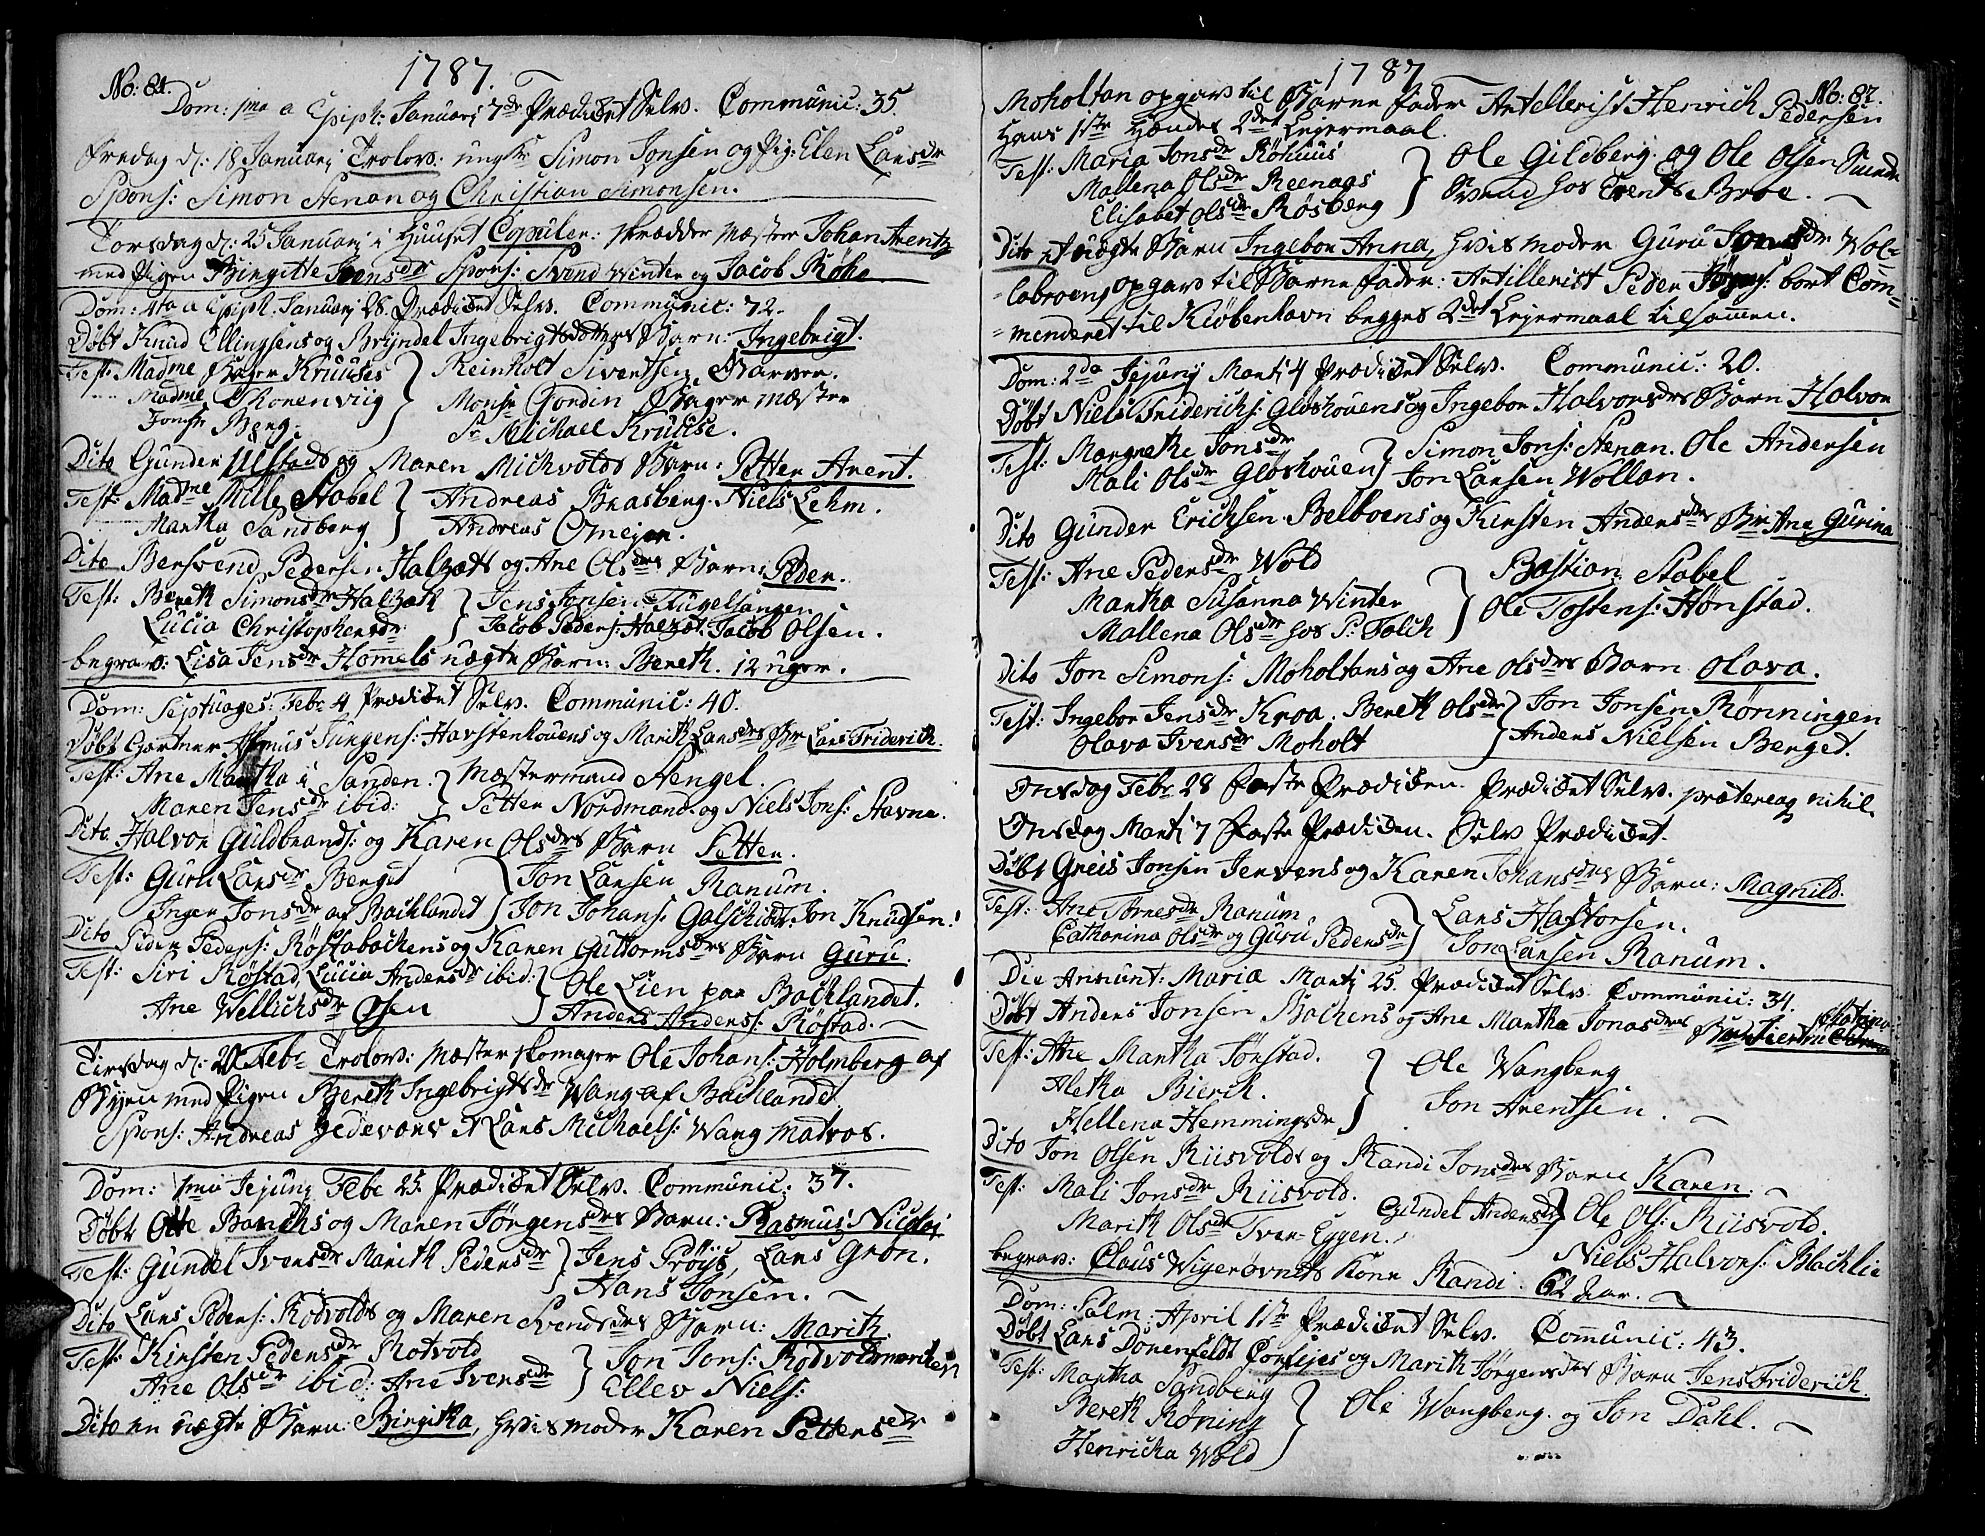 No: 81.
1787.
Dom: 1ma a Epiph: Januarj 7de Prædicket Selv. Communic: 35.
Fredag d: 18 Januarj Trolov: ungkr Simon Jonsen og Pig: Elen Larsdr
Spons: Simon Stenan og Christian Simonsen.
Torsdag d: 25 Januarj i Huuset Copuler: Skrædder Mæster Johan Arentz
med Pigen Birgitte Ivensdr Spons: Svend Winter og Jacob Røhe
Dom: 4ta a Epiph. Januarj 28. Prædicket Selv. Communic: 72.
Døbt Knud Ellingsens og Bryndel Ingebrigtsdatters Barn: Ingebrigt.
Test: Madme Bager Kruuses } Reinholt Siventsen Garver.
Madme Thonenvig } Monsr Gordin Bager Mæster
Jomfr Berg. } Sr Michael Kruuse.
Dito Gunder Ulstads og Maren Michvolds Barn: Petter Arent.
Test: Madme Mille Stabel } Andreas Brasberg. Niels Lehm.
Martha Sandberg } Andreas Omejer.
Dito Bersvend Pedersen Halsæts og Ane Olsdrs Barn: Peder.
Test: Bereth Simonsdr Halsæth } Jens Jonsen Fugelsangen
Lucia Christophersdr } Jacob Peders: Halsæt. Jacob Olsen.
begrav: Lisa Jensdr Hommels uægte Barn: Bereth. 12 uger.
Dom: Septuages: Febr 4 Prædicket Selv. Communic: 40.
Døbt Gartner Asmus Jurgens: Havstenhouens og Marith Larsdrs Br Lars Friderich.
Test: Ane Martha i Sanden: } Mæstermand Stengel.
Maren Jensdr ibid: } Petter Nordmand. og Niels Jons: Stavne.
Dito Halvor Guldbrands: og Karen Olsdrs Barn Petter.
Test: Guru Larsdr Berget } Jon Larsen Ranum.
Inger Jonsdr af Backlandet } Jon Johans: Galschiöt: Jon Knudsen:
Dito Peder Peders: Røstabackens og Karen Guttormsdrs Barn Guru.
Test: Siri Røstad, Lucia Andersdr ibid: } Ole Lien paa Backlandet.
Ane Wellichsdr Øsen } Anders Anders: Røstad.
Tirsdag d: 20 Febr Trolov: Mæster Skomager Ole Johans: Holmberg af
Byen med Pigen Bereth Ingebrigtsdr Wang af Backlandet
Spons: Andreas Gedevars & Lars Michaels: Wang Matros.
Dom: 1ma Jejunj Febr 25. Prædicket Selv. Communic: 37.
Døbt Otte Barichs og Maren Jørgensdrs Barn: Rasmus Nicolaj
Test: Gundel Ivensdr Marith Pedersdr } Jens Prøys, Lars Grøn.
Hans Jonsen.
Dito Lars Peders: Rodvolds og Maren Svendsdrs Barn: Marith.
Test: Kirsten Pedersdr Rotvold } Jon Jons: Rodvoldmarken
Ane Olsdr ibid: Ane Ivensdr } Ellev Niels:
Dito en uægte Barn: Birgitha, hvis Moder Karen Pettersdr
1787
No: 82.
Moholtan opgav til Barne Fader Artellerist Henrich Pedersen
Hans 1ste Hændes 2det Lejermaal.
Test: Maria Jonsdr Røhuus } Ole Gildberg. og Ole Olsen Sunde
Mallena Olsdr Reenaas } Svend hos Events Broe.
Elisabet Olsdr Røsberg
Dito et uægte Barn Ingebor Anna, hvis Moder Guru Ivensdr Vol-
labroens opgav til Barne Fader: Artillerist Peder Jørgs: bort Com-
menderet til Kiøbenhavn begges 2det Lejermaal tilsammen.
Dom: 2da Jejunj Martj 4 Prædicket Selv. Communic: 20.
Døbt Niels Friderichs: Gløshouens og Ingebor Halvorsdrs Barn Halvor
Test: Margrethe Jonsdr } Simon Jons: Stenan. Ole Andersen
Mali Olsdr Gløshouen } Jon Larsen Wollan.
Dito Gunder Erichsen Belboens og Kirsten Andersdrs Br Ane Gurina
Test: Ane Pedersdr Wold } Bastian Stabel
Martha Susanna Winter } Ole Tostens: Hønstad.
Mallena Olsdr hos P: Falch
Dito Jon Simons: Moholtans og Ane Olsdrs Barn Olava.
Test: Ingebor Jensdr Kroa. Bereth Olsdr } Jon Jonsen Rønningen
Olava Ivensdr Moholt } Anders Nielsen Berget.
Onsdag Febr 28 Faste Prædicken. Prædicket Selv. prætereaq nihil.
Onsdag Martj 7 Faste Prædicken. Selv Prædicket.
Døbt Greis Jonsen Jervens og Karen Johansdrs Barn: Magnild.
Test: Ane Tørresdr Ranum } Lars Hastorsen.
Catharina Olsdr og Guru Pedersdr } Jon Larsen Ranum.
Die Annunt: Maria Martj 25. Prædicket Selv. Communic: 34.
Døbt Anders Jonsen Backens og Ane Martha Jonasdrs Barn Giertru
Test: Ane Martha Tønstad. } Ole Wangberg
Aletha Bierch. } Jon Arentsen.
Hellena Hemmingsdr
Dito Jon Olsen Riisvolds og Randi Jonsdrs Barn Karen.
Test: Mali Jonsdr Riisvold. Gundel Andersdr } Ole Ols: Riisvold.
Marith Olsdr Tver Eggen. Niels Halvors: Backlie
begrav: Claus Wigerøvnets Kone Randi. 62 Aar.
Dom: Palm: April 1ste Prædicket Selv. Communic: 43.
Døbt Lars Donenfeldt Corsijes og Marith Jørgensdrs Barn Jens Friderich.
Test: Martha Sandberg } Ole Wangberg. og Jon Dahl.
Bereth Røning
Henricha Wold